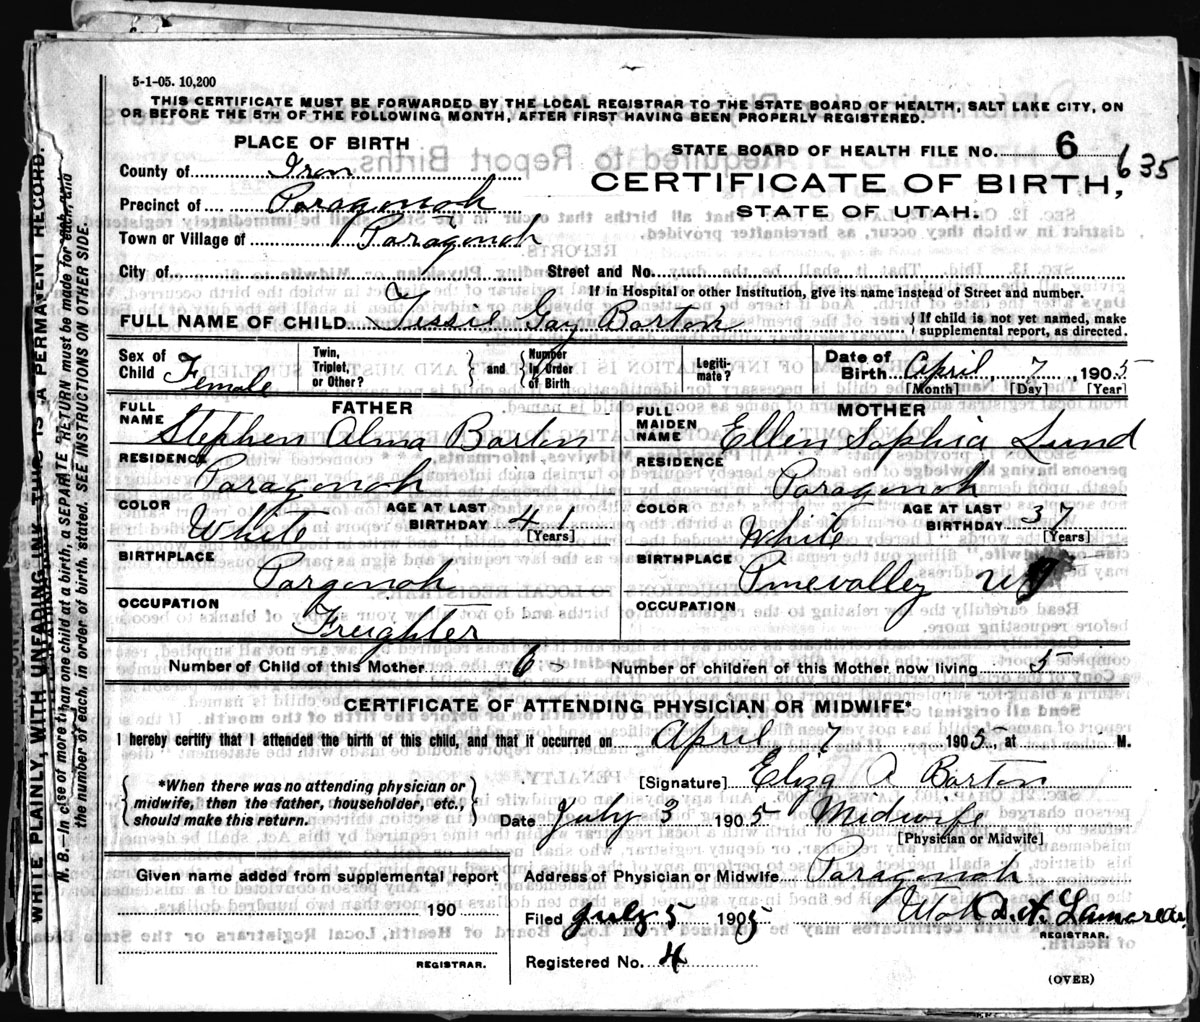 5-1-05. 10,200
THIS CERTIFICATE MUST BE FORWARDED BY THE LOCAL REGISTRAR TO THE STATE BOARD OF HEALTH, SALT LAKE CITY, ON
OR BEFORE THE 5TH OF THE FOLLOWING MONTH, AFTER FIRST HAVING BEEN PROPERLY REGISTERED.
PLACE OF BIRTH
STATE BOARD OF HEALTH FILE No. 6 635
County of Iron
CERTIFICATE OF BIRTH,
Precinct of Paragonah
STATE OF UTAH.
Town or Village of Paragonah
City of Street and No.
If in Hospital or other Institution, give its name instead of Street and number.
FULL NAME OF CHILD Tessie Gay Barton
{ If child is not yet named, make
supplemental report, as directed.
Sex of Child Female
Twin, Triplet, or Other? } and { Number In Order of Birth
Legiti-mate?
Date of Birth April 7, 1905
[Month] [Day] [Year]
FATHER
FULL NAME Stephen Alma Barton
RESIDENCE Paragonah
COLOR White AGE AT LAST BIRTHDAY 41
[Years]
BIRTHPLACE Pargonah
OCCUPATION Freighter
MOTHER
FULL MAIDEN NAME Ellen Sophia Lund
RESIDENCE Paragonah
COLOR White AGE AT LAST BIRTHDAY 37
[Years]
BIRTHPLACE Pinevalley
OCCUPATION
Number of Child of this Mother 6 Number of children of this Mother now living 5
CERTIFICATE OF ATTENDING PHYSICIAN OR MIDWIFE*
I hereby certify that I attended the birth of this child, and that it occurred on April 7 1905, at M.
{ *When there was no attending physician or
midwife, then the father, householder, etc.,
should make this return. }
[Signature] Eliza A Barton
Date July 3 1905 Midwife
[Physician or Midwife]
Given name added from supplemental report
190
REGISTRAR.
Address of Physician or Midwife Paragonah
Utah
Filed July 5 1905
REGISTRAR.
Registered No. 4
(OVER)
WRITE PLAINLY, WITH UNFADING INK—THIS IS A PERMANENT RECORD.
N. B.—In case of more than one child at a birth, a SEPARATE RETURN must be made for each, and
the number of each, in order of birth, stated. SEE INSTRUCTIONS ON OTHER SIDE.